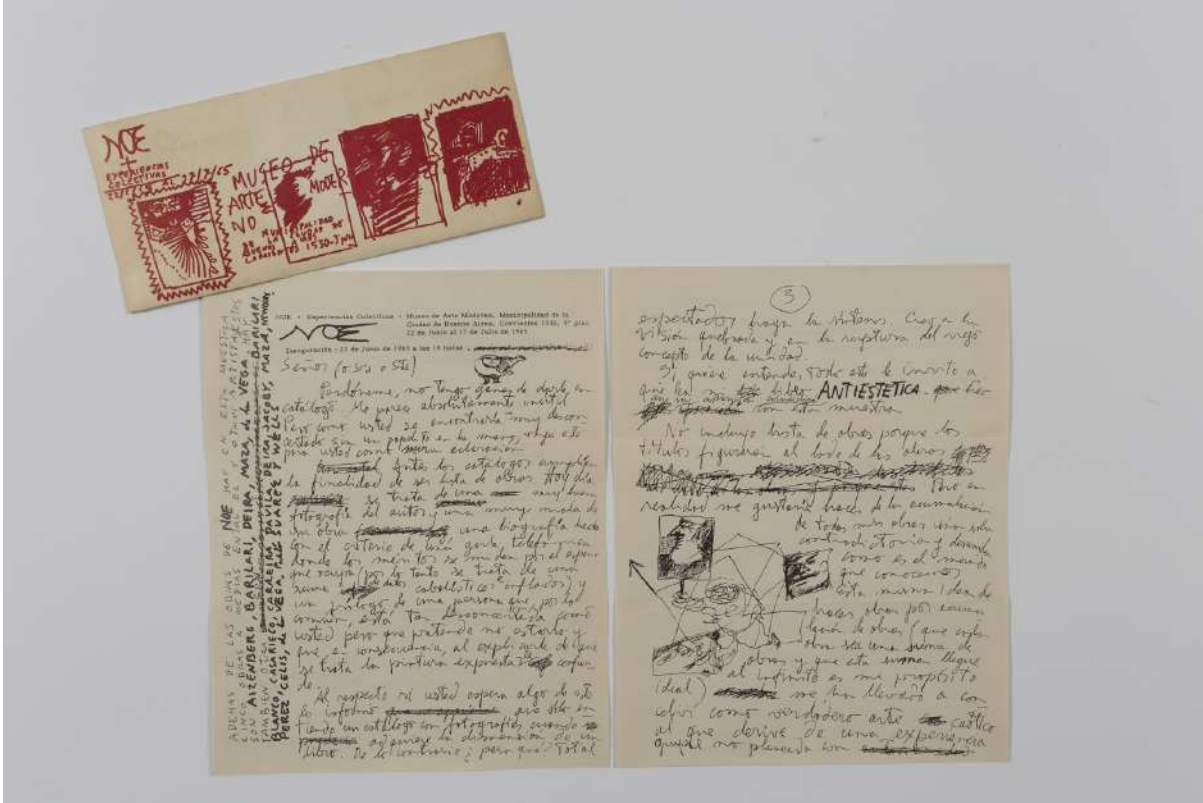 NOE
+
EXPERIENCIAS
COLECTIVAS
AL 22/7/65
MUSEO DE
ARTE MODER
NO
MUNICIPALIDAD
DE LA CIUDAD DE
BUENOS AIRES
CORRIENTES 1530
ADEMAS DE LAS OBRAS DE NOE HAY EN ESTA MUESTRA
CINCO OBRAS
SON: AIZENBERG, BARILARI, DEIRA, MAZA, de la VEGA
TAMBIEN OTRA
BLANCO, CASARIEGO, CARREIRA, DAVILA, DEIRA, JACOBY, MAZA, NEWBERY
PEREZ CELIS, de la VEGA, RUIZ, SUAREZ Y WELLS
NOE - Experiencias Colectivas - Museo de Arte Moderno, Municipalidad de la
Ciudad de Buenos Aires, Corrientes 1530, 9º piso
22 de Junio al 17 de Julio de 1965
NOE
Inauguración: 22 de Junio de 1965 a las 19 horas
Señor (o sra o Sta)
Perdóneme, no tengo ganas de darle un
catálogo. Me parece absolutamente inútil
Pero como usted se encontraría muy descon
certado sin un papelito en la mano, vaya esto
para usted como mera aclaración
Antes los catálogos cumplían
la finalidad de ser lista de obras. Hoy día
se trata de una muy buena
fotografía del autor y una muy mala de
su obra una biografía hecha
con el criterio de una guía telefónica
donde los méritos se miden por el espacio
que ocupan (por lo tanto se trata de una
suma de datos cabalísticos e inflados) y
un prólogo de una persona que, por lo
común, está tan desconcertada como
usted pero que pretende no estarlo y
que, en consecuencia, al explicarle de que
se trata la pintura expuesta confun
de.
Al respecto si usted espera algo de esto
le informo que sólo en
tiendo un catálogo con fotografías cuando
adquiere la dimensión de un
libro. De lo contrario ¿para qué? Total
3
espectador haga la síntesis. Creo en la
visión quebrada y en la ruptura del viejo
concepto de la unidad.
Si quiere entender todo esto le invito a
que lea mi libro ANTIESTETICA
con esta muestra
No incluyo lista de obras porque los
títulos figuran al lado de las obras
Pero en
realidad me gustaría hacer de la acumulación
de todas mis obras una sola
contradictoria y
como es el mundo
que conocemos
esta misma idea de
hacer obras por acumu
lación de obras (que cada
obra sea una suma de
obras y que esta suma llegue
al infinito es mi propósito
ideal) me han llevado a con
cebir como verdadero arte caótico
al que derive de una experiencia
grupal no planeada con